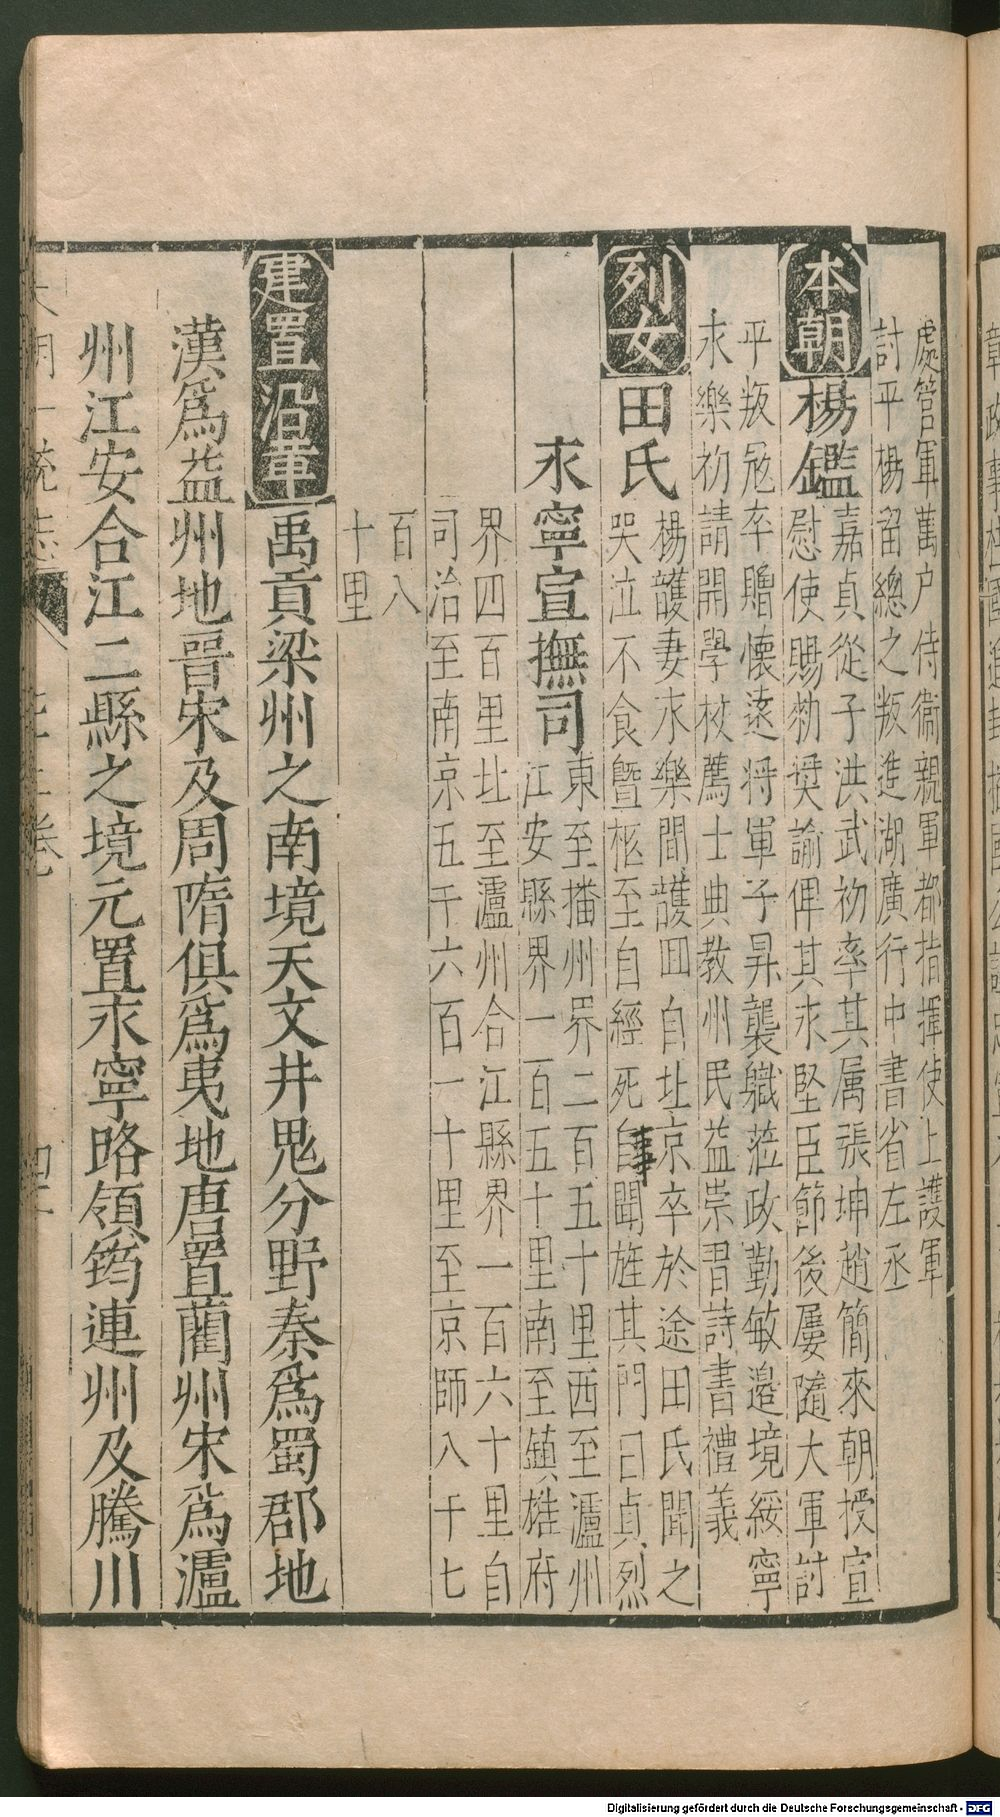 處管軍萬户侍衞親軍都指揮使上護軍
討平楊留總之叛進湖廣行中書省左丞
本朝楊鑑嘉貞從子洪武初率其属張坤趙簡來朝授宣
慰使賜勑奨諭俾其永堅臣節後屢隨大軍討
平叛冦卒贈懷逺将軍子昇襲軄蒞政勤敏邉境綏寧
永樂初請開學校薦士典教州民益崇習詩書禮義
列女田氏楊護妻永樂間護囬自北京卒於途田氏聞之
哭泣不食曁柩至自經死事聞旌其門曰貞烈
永寧宣撫司東至播州界二百五十里西至瀘州
江安縣界一百五十里南至鎮雄府
界四百里北至瀘州合江縣界一百六十里自
司治至南京五千六百一十里至京師八千七
百八
十里
建置沿革禹貢梁州之南境天文井鬼分野秦爲蜀郡地
漢爲益州地晉宋及周隋俱爲夷地唐置藺州宋爲瀘
州江安合江二縣之境元置永寧路領筠連州及騰川
大明一統志
四十
Digitalisierung gefördert durch die Deutsche Forschungsgemeinschaft - DFG